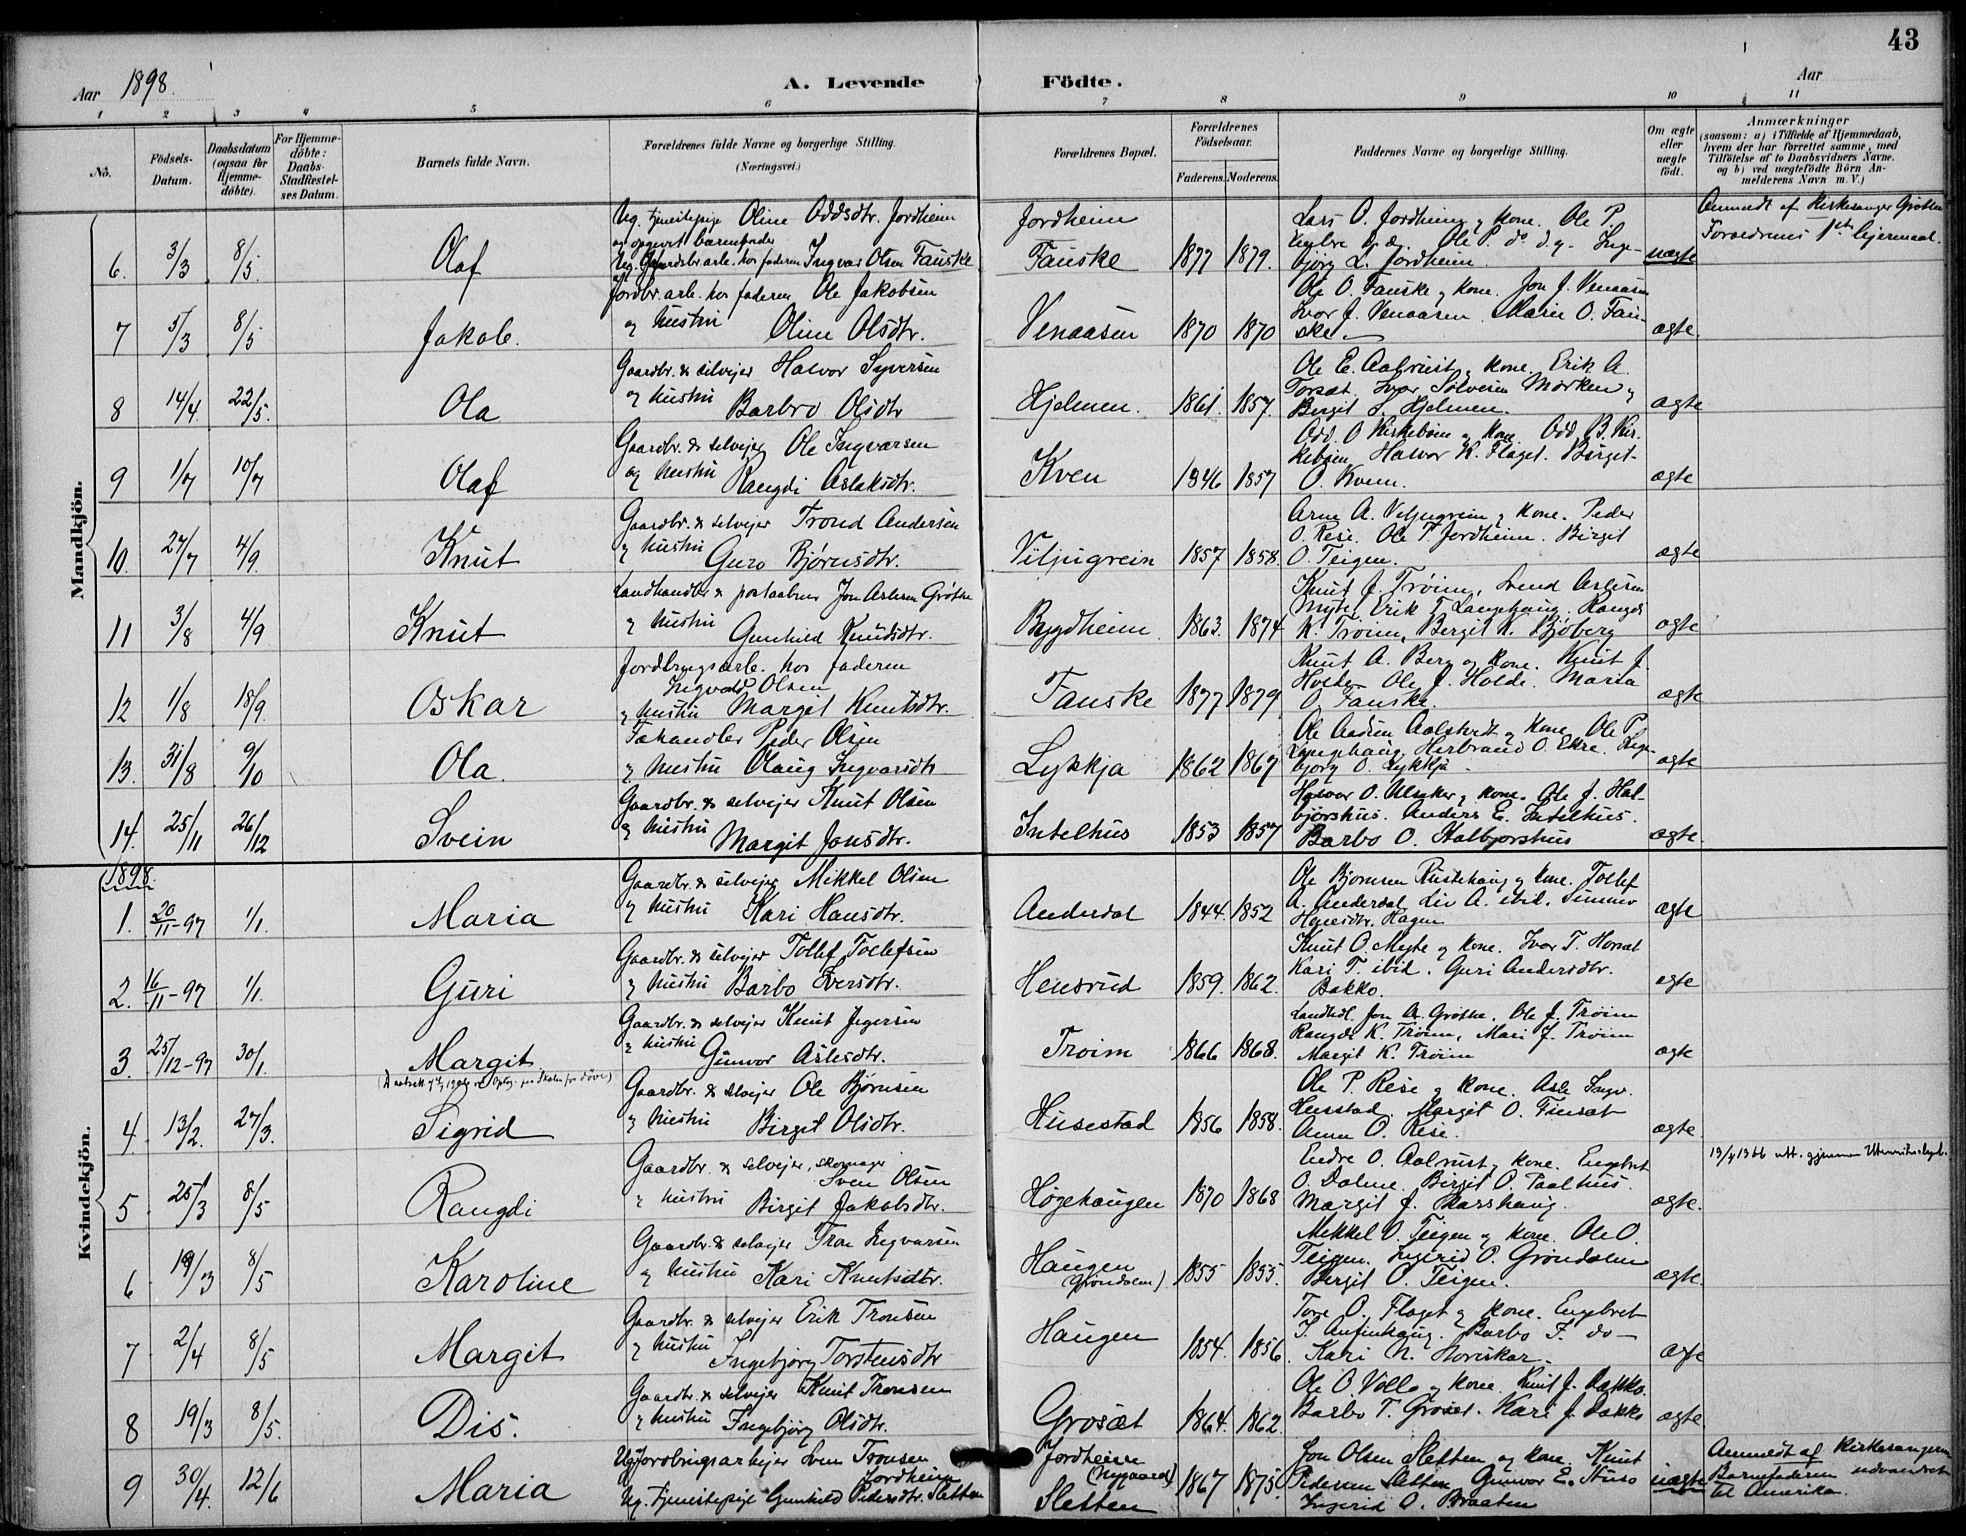 43
Aar 1898. A. Levende Födte. Aar
1 2 3 4 5 6 7 8 9 10 11
No. Födsels-Datum. Daabsdatum (ogsaa för Hjemme-döbte). For Hjemme-döbte: Daabs-Stadfæstelses Datum. Barnets fulde Navn. Forældrenes fulde Navne og borgerlige Stilling. (Næringsvei.) Forældrenes Bopæl. Forældrenes Födselsaar. Faderens. Moderens. Faddernes Navne og borgerlige Stilling. Om ægte eller uægte födt. Anmærkninger (saasom: a) i Tilfælde af Hjemmedaab, hvem der har forrettet samme, med Tilföielse af to Daabsvidners Navne. og b) ved uægtefödte Börn Anmelderens Navn m. V.)
Mandkjön.
Ug. tjenestepige Oline Oddsdtr. Jordheim Jordheim Lars O. Jordheim og kone. Ole P. Anmeldt af Kirkesanger Grøthe
og opgivet barnefader Forældrenes 1ste lejermaal.
6. 3/3 8/5. Olaf Ug. Gaardsbr.arb. hos faderen Ingvar Olsen Fauske Fauske 1877 1879. Ole P. do d.y. Inge-
bjørg L. Jordheim. uægte
Jordbr.arb. hos faderen Ole Jakobsen Ole O. Fauske og kone. Jon J. Venaasen
7 5/3 8/5 Jakob. og hustru Oline Olsdtr. Venaasen 1870 1870 Ivar J. Venaasen. Marie O. Fau-
ske. ægte.
Gaardbr. & selvejer Halvor Syversen Ole E. Aalrust og kone. Erik A.
8 14/4. 22/5. Ola og hustru Barbro Olsdtr Hjelmen. 1861. 1857. Torsæt. Ivar Sølvesen Mørken og
Birgit S. Hjelmen. ægte
Gaardbr. & selvejer Ole Ingvarsen Odd. O Kirkebøen og kone. Odd B. Kir-
9 1/7 10/7 Olaf og hustru Rangdi Aslaksdtr. Kven 1846 1857 kebøen, Halvor K. Flaget. Birgit
O. Kven. ægte
Gaardbr. & selvejer Trond Andersen Arne A. Viljugrein og kone. Peder
10. 27/7 4/9. Knut og hustru Guro Bjørnsdtr. Viljugrein 1857 1858. O. Rese. Ole P. Jordheim. Birgit
O. Teigen. ægte
Landhandler & postaabner Jon Aslesen Grøthe Knut J. Trøim, Svend Aslesen
11 3/8 4/9 Knut og hustru Gunhild Knudsdtr. Bygdheim 1863. 1874 Myte, Erik T. Langehaug. Rangdi
K. Trøim, Bergit K. Bjøberg ægte
Jordbrugsarb. hos faderen Knut A. Berg og kone. Knut J.
Ingvald Olsen
12 1/8 18/9. Oskar og hustru Margit Knutsdtr. Fauske 1877 1879 Holde. Ole J. Holde. Maria
O. Fauske. ægte
Fæhandler Peder Olsen Ole Aadsen Aalstvedt og kone. Ole P.
13. 31/8 9/10 Ola. og hustru Olaug Ingvarsdtr Lykkja 1862 1867 Langehaug, Herbrand O. Ekre. Inge-
bjørg O. Lykkja ægte
Gaardbr. & selvejer Knut Olsen Halvor O. Ulsaker og kone. Ole J. Hal-
14. 25/11 26/12 Svein og hustru Margit Jonsdtr. Intelhus 1853 1857 bjørshus. Anders E. Intelhus.
Barbo O. Halbjorshus ægte.
Kvindekjön.
1898.
Gaardbr. & selvejer Mikkel Olsen Ole Bjørnsen Rustehaug og kone. Tollef
1. 20/11-97 1/1. Maria og hustru Kari Hansdtr. Anderdal 1844. 1852 A. Anderdal Liv A. ibid.
Hagen ægte
Gaardbr. & selvejer Tollef Tollefsen Knut O. Myte og kone. Ivar T. Horsæt
2. 16/11-97 1/1. Guri og hustru Barbo Iversdtr. Hensrud 1859. 1862. Kari T. ibid. Guri Andersdtr.
Bakko. ægte
Gaardbr. & selvejer Knut Jegersen Landhdl. Jon A. Grøthe. Ole J. Trøim
3. 25/12-97 30/1. Margit og hustru Gunvor Aslesdtr. Trøim 1866 1868. Rangdi K. Trøim, Mari J. Trøim
Margit K. Trøim ægte
Gaardbr. & selvejer Ole Bjørnsen Ole P. Rese og kone. Asle Ingv.
4. 13/2. 27/3. Sigrid og hustru Birgit Olsdtr. Husestad 1856 1858. Husestad. Margit O. Finset
Anne O. Rese. ægte
Gaardbr. & selvejer, skomager Endre O. Aalrust og kone. Engebret
5 25/3 8/5 Rangdi Sven Olsen og hustru Birgit Jakobsdtr. Høgehaugen 1870 1868 O. Dalene. Birgit O. Paalhus.
Margit J. ægte.
Gaardbr. & selvejer Tron Ingvarsen Mikkel O. Teigen og kone. Ole O.
6 19/3 8/5 Karoline og hustru Kari Knutsdtr. Haugen (Grøndalen) 1855 1855. Teigen. Ingerid O. Grøndalen
Bergit O. Teigen. ægte.
Gaardbr. & selvejer Erik Tronsen Tore O. Flaget og kone. Engebret
7 2/4 8/5 Margit og hustru Ingebjørg Torstensdtr Haugen 1854. 1856. T. Anfinhaug. Barbo F. do
Kari N. ægte
Gaardbr. & selvejer Knut Tronsen Ole O. Vollo og kone. Knut J. Bakko.
8 19/3 8/5. Dis. og hustru Ingebjørg Olsdtr. Grosæt 1864. 1862. Barbo T. Grosæt. Kari J. Bakko ægte.
Ug. Jordbrugsarbejer Sven Tronsen Jordheim Jordheim (Nygaard) Jon Olsen Sletten og kone. Knut Anmeldt af Kirkesangeren
9 30/4. 12/6 Maria Ug. tjenestepige Gunhild Pedersdtr. Sletten Sletten 1867 1875 Pedersen Sletten Gunvor E. Huso
Ingerid O. Braaten uægte Barnefaderen udvandret
til Amerika.